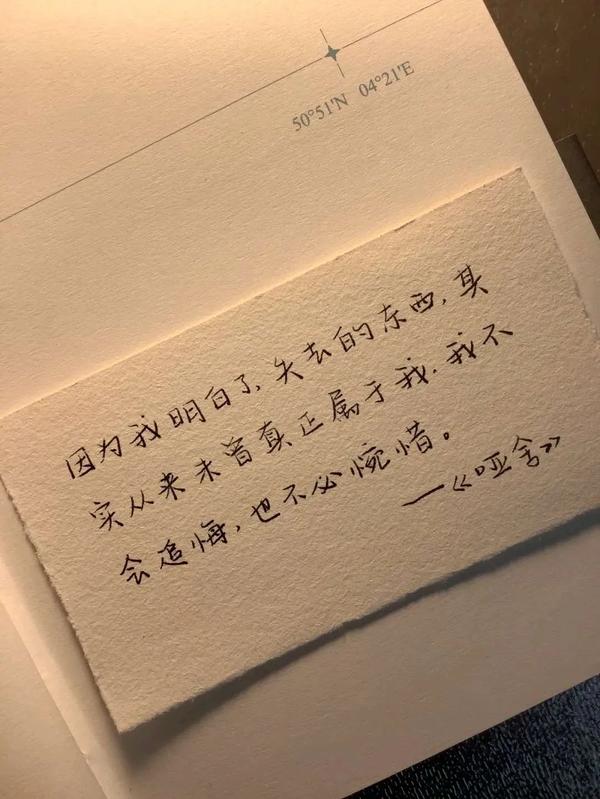 50°51'N 04°21'E
因为我明白了,失去的东西,其
实从来未曾真正属于我.我不
会追悔,也不必惋惜。
—《哑舍》